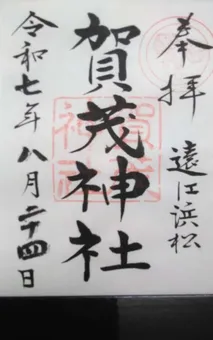 奉拝
遠江浜松
賀茂神社
令和七年八月二十四日
賀茂
神社